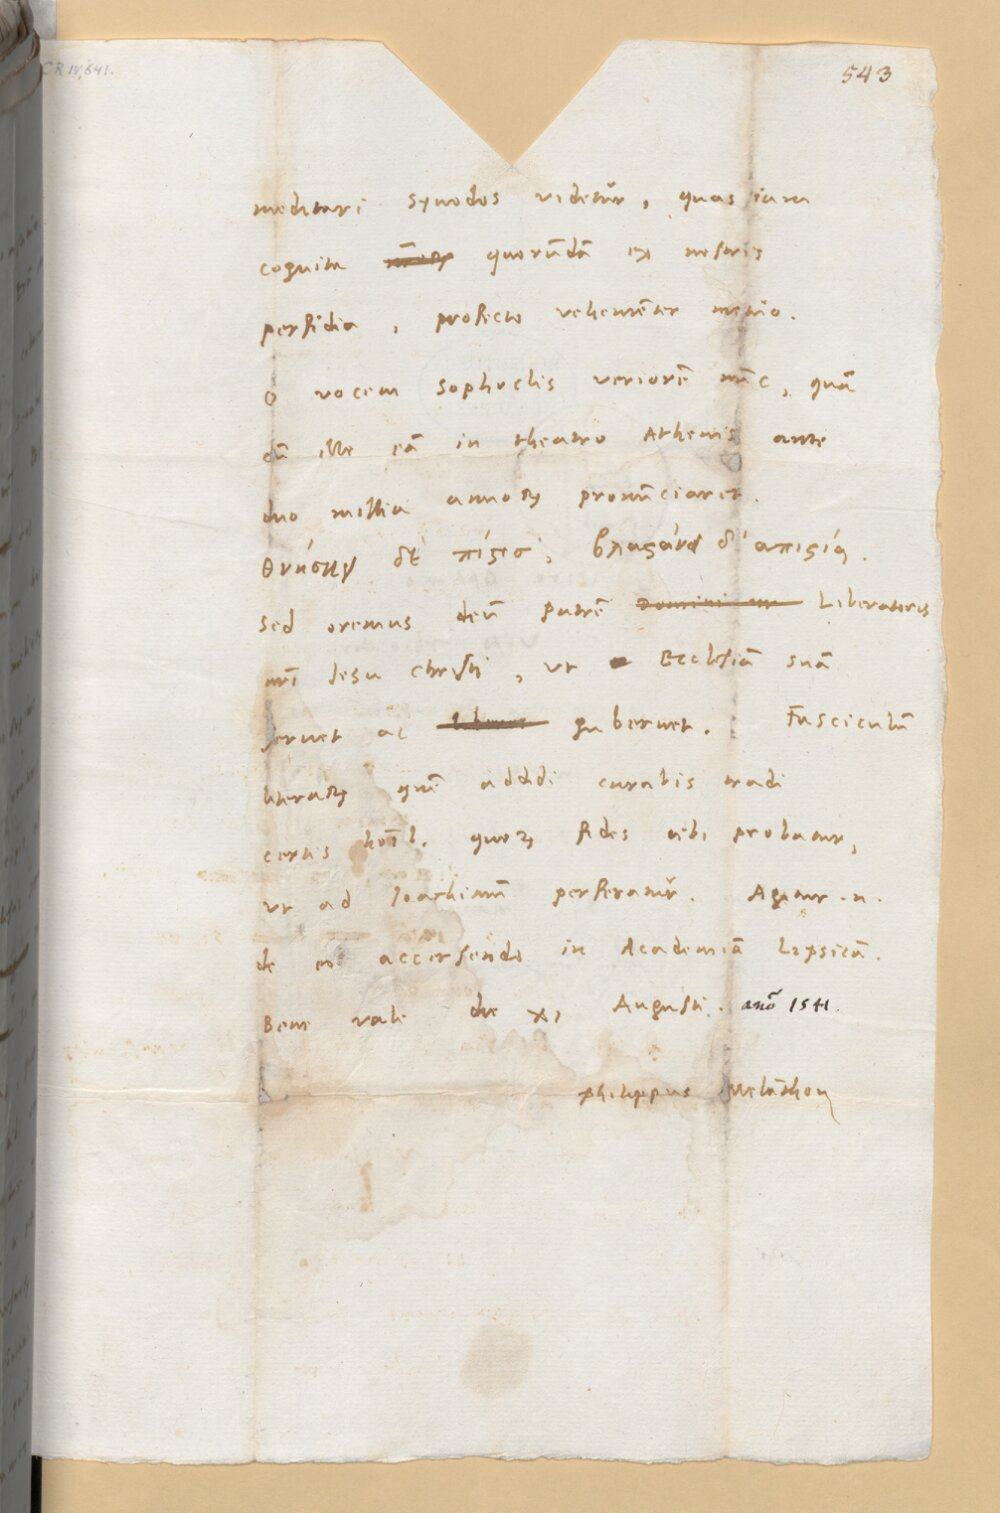 CR IV, 641.
543
meditari synodos videtūr, quas iam
cognita quorūdā ex nostris
perfidia, profecto vehemēter metuo.
O vocem Sophoclis veriorē nūc, quā
cū ille eā in theatro Athenis ante
duo millia annoꝝ pronūciaret.
θνήσκει δὲ πίστις, βλαστάνει δ' ἀπιστία.
Sed oremus deū patrē Liberatoris
nrī Iesu Christi, ut Ecclesiā suā
servet ac gubernet. Fasciculū
literaꝝ quē addidi curabis tradi
certis hoīb. quoꝝ fides tibi probatur,
ut ad Ioachimū perferatūr. Agitur .n.
de eo accersendo in Academiā Lipsicā.
Bene vale die XI Augusti. anō 1541.
Philippus Melāthon